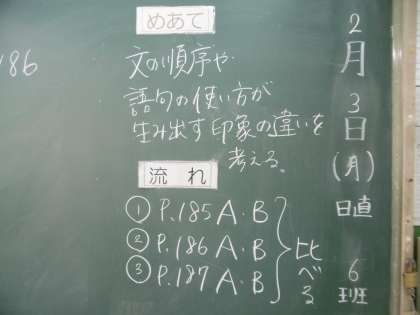 2月3日(月)
日直 6班
めあて
文の順序や
語句の使い方が
生み出す印象の違いを
考える。
流れ
① P.185 A・B
② P.186 A・B
③ P.187 A・B
比べる
186